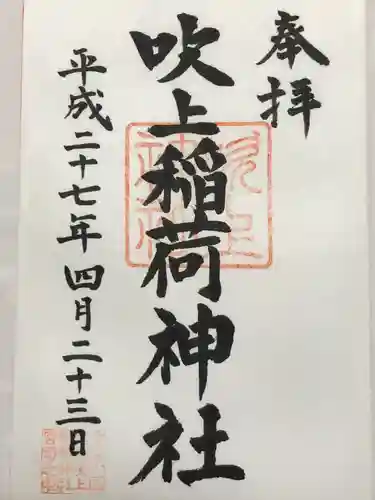 奉拝
吹上稲荷神社
平成二十七年四月二十三日